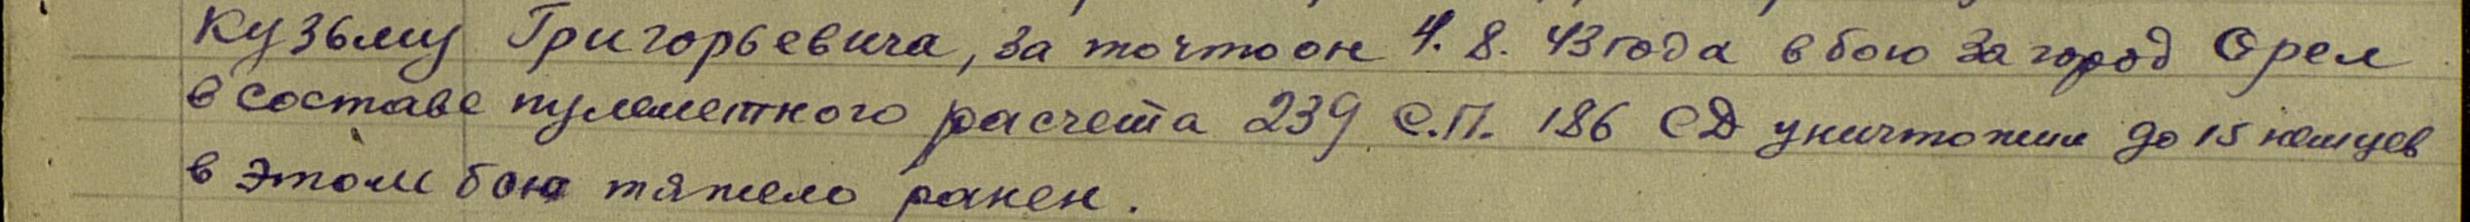 Кузьму Григорьевича, за то что он 4. 8. 43 года в бою за город Орел
в составе пулеметного расчета 239 С.П. 186 СД уничтожил до 15 немцев
в этом бою тяжело ранен.